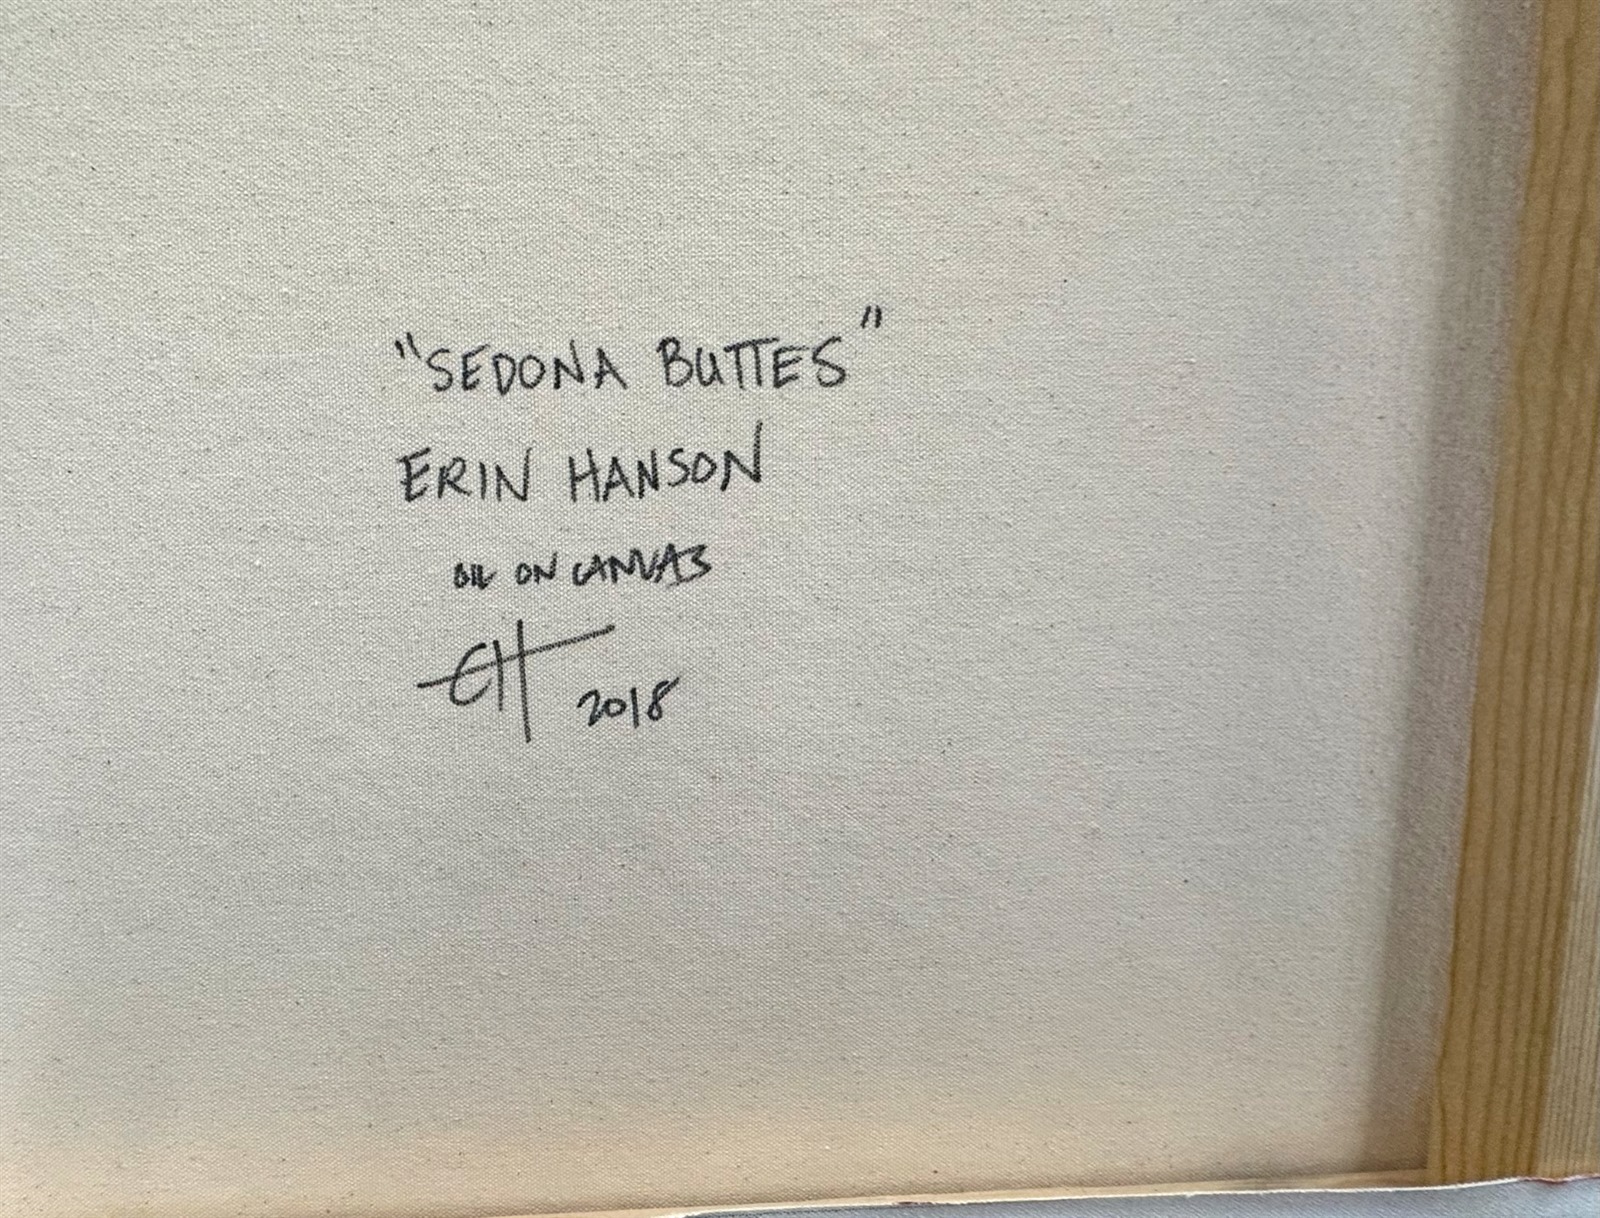 "SEDONA BUTTES"
ERIN HANSON
OIL ON CANVAS
EH 2018